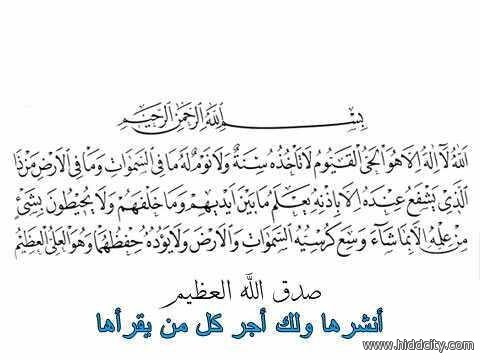 بِسْمِ اللَّهِ الرَّحْمَنِ الرَّحِيمِ
اللَّهُ لَا إِلَهَ إِلَّا هُوَ الْحَيُّ الْقَيُّومُ لَا تَأْخُذُهُ سِنَةٌ وَلَا نَوْمٌ لَهُ مَا فِي السَّمَوَاتِ وَمَا فِي الْأَرْضِ مَنْ ذَا
الَّذِي يَشْفَعُ عِنْدَهُ إِلَّا بِإِذْنِهِ يَعْلَمُ مَا بَيْنَ أَيْدِيهِمْ وَمَا خَلْفَهُمْ وَلَا يُحِيطُونَ بِشَيْءٍ
مِنْ عِلْمِهِ إِلَّا بِمَا شَاءَ وَسِعَ كُرْسِيُّهُ السَّمَوَاتِ وَالْأَرْضَ وَلَا يَؤُدُهُ حِفْظُهُمَا وَهُوَ الْعَلِيُّ الْعَظِيمُ
صدق الله العظيم
أنشرها ولك أجر كل من يقرأها
www.hiddcity.com